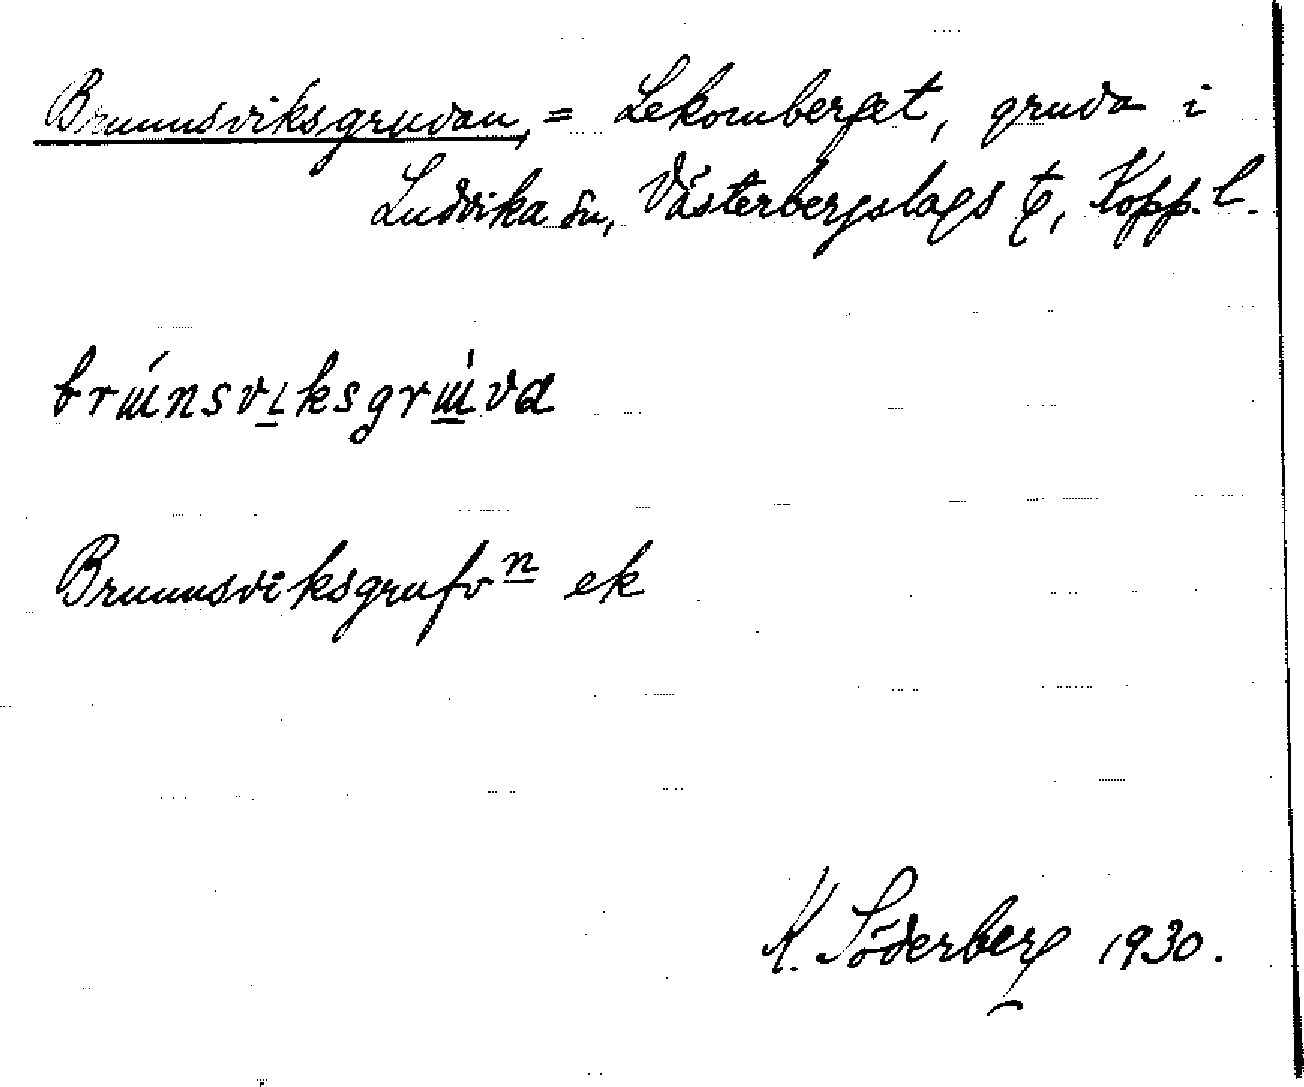 Brunnsviksgruvan, = Lekomberget, gruva i
Ludvika sn, Västerbergslags tg, Kopp. l.
brɯ́nsvi̱ksgrɯ̱́va
Brunnsviksgrufvn ek
K. Söderberg 1930.